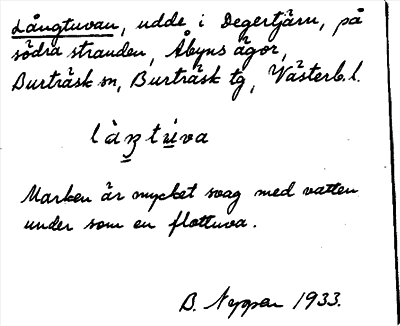 Långtuvan, udde i Degertjärn, på
södra stranden, Åbyns ägor,
Burträsk sn, Burträsk tg, Västerb. l.
làŋtúva
Marken är mycket svag med vatten
under som en flottuva.
B. 1933.